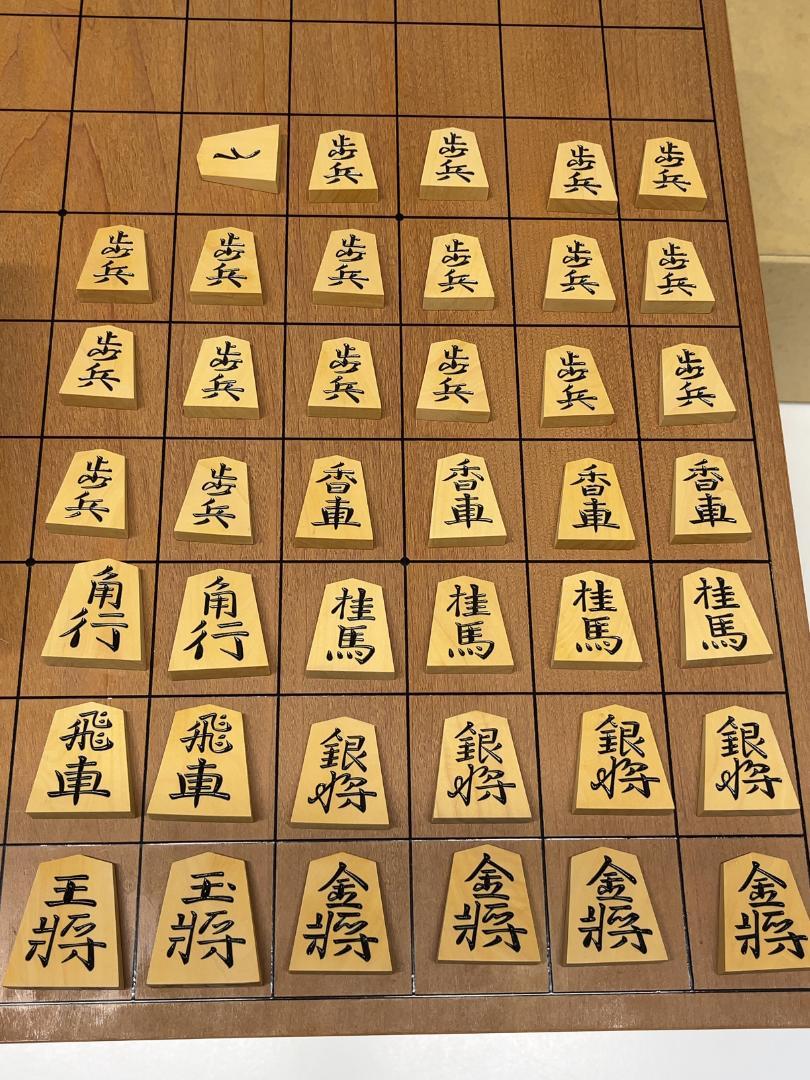 と 歩兵 歩兵 歩兵 歩兵
歩兵 歩兵 歩兵 歩兵 歩兵 歩兵
歩兵 歩兵 歩兵 歩兵 歩兵 歩兵
歩兵 歩兵 香車 香車 香車 香車
角行 角行 桂馬 桂馬 桂馬 桂馬
飛車 飛車 銀将 銀将 銀将 銀将
王将 玉将 金将 金将 金将 金将